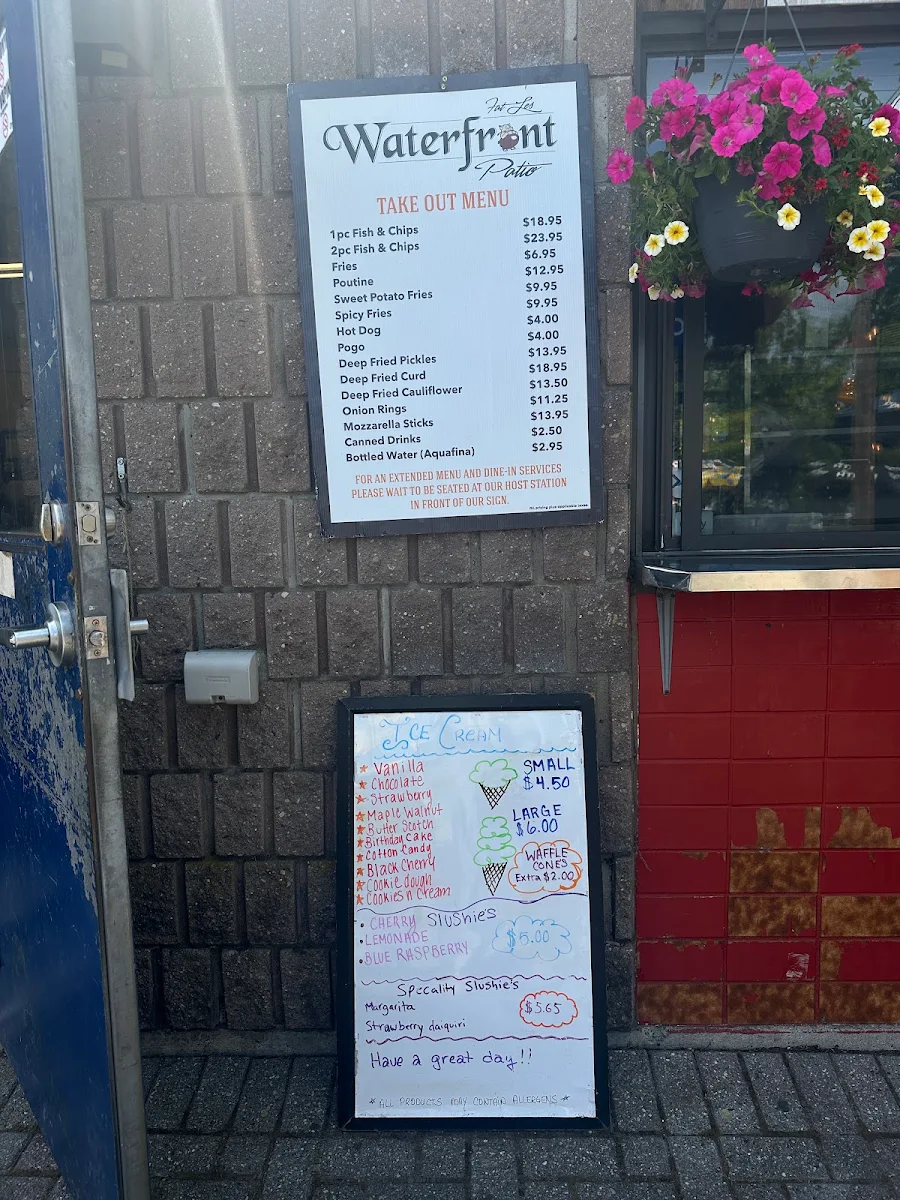 Fat Les
Waterfront
Patio
TAKE OUT MENU
1pc Fish & Chips $18.95
2pc Fish & Chips $23.95
Fries $6.95
Poutine $12.95
Sweet Potato Fries $9.95
Spicy Fries $9.95
Hot Dog $4.00
Pogo $4.00
Deep Fried Pickles $13.95
Deep Fried Curd $18.95
Deep Fried Cauliflower $13.50
Onion Rings $11.25
Mozzarella Sticks $13.95
Canned Drinks $2.50
Bottled Water (Aquafina) $2.95
FOR AN EXTENDED MENU AND DINE-IN SERVICES
PLEASE WAIT TO BE SEATED AT OUR HOST STATION
IN FRONT OF OUR SIGN.
All pricing plus applicable taxes
ICE CREAM
Vanilla
Chocolate
Strawberry
Maple Walnut
Butter Scotch
Birthday Cake
Cotton Candy
Black Cherry
Cookie dough
Cookies n' Cream
SMALL
$4.50
LARGE
$6.00
WAFFLE
CONES
Extra $2.00
Slushie's
• CHERRY
• LEMONADE
• BLUE RASPBERRY
$5.00
Specality Slushie's
Margarita
Strawberry daiquiri
$5.65
Have a great day!!
* ALL PRODUCTS MAY CONTAIN ALLERGENS *